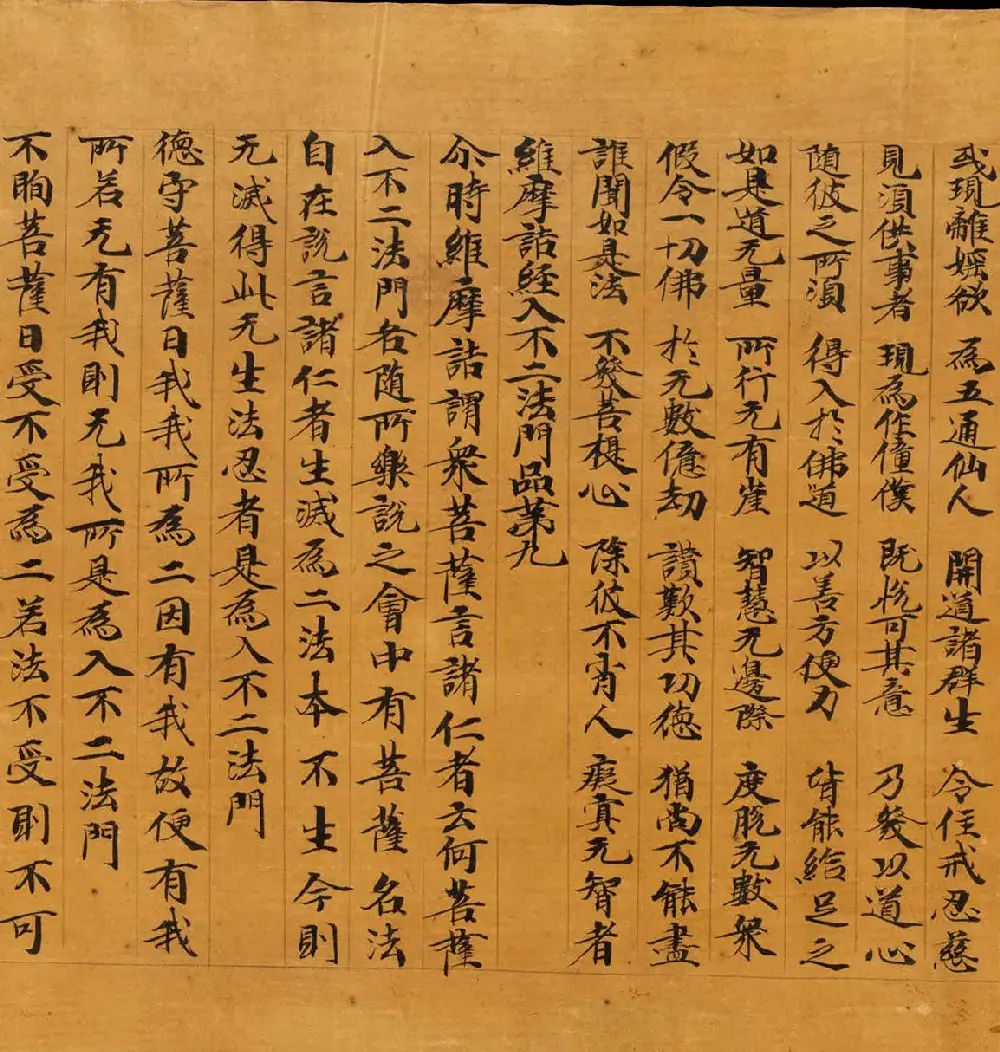 或現離婬欲 為五通仙人 開道諸群生 令住戒忍慈
見湏供事者 現為作僮僕 既悅可其意 乃發以道心
随彼之所湏 得入於佛道 以善方便力 皆能給足之
如是道无量 所行无有崖 智慧无邊際 度脫无數衆
假令一切佛 於无數億劫 讃歎其功德 猶尚不能盡
誰聞如是法 不發菩提心 除彼不宵人 癡冥无智者
維摩詰經入不二法門品苐九
尒時維摩詰謂衆菩薩言諸仁者云何菩薩
入不二法門各随所樂說之會中有菩薩名法
自在說言諸仁者生滅為二法本不生今則
无滅得此无生法忍者是為入不二法門
德守菩薩曰我我所為二因有我故便有我
所若无有我則无我所是為入不二法門
不眴菩薩曰受不受為二若法不受則不可